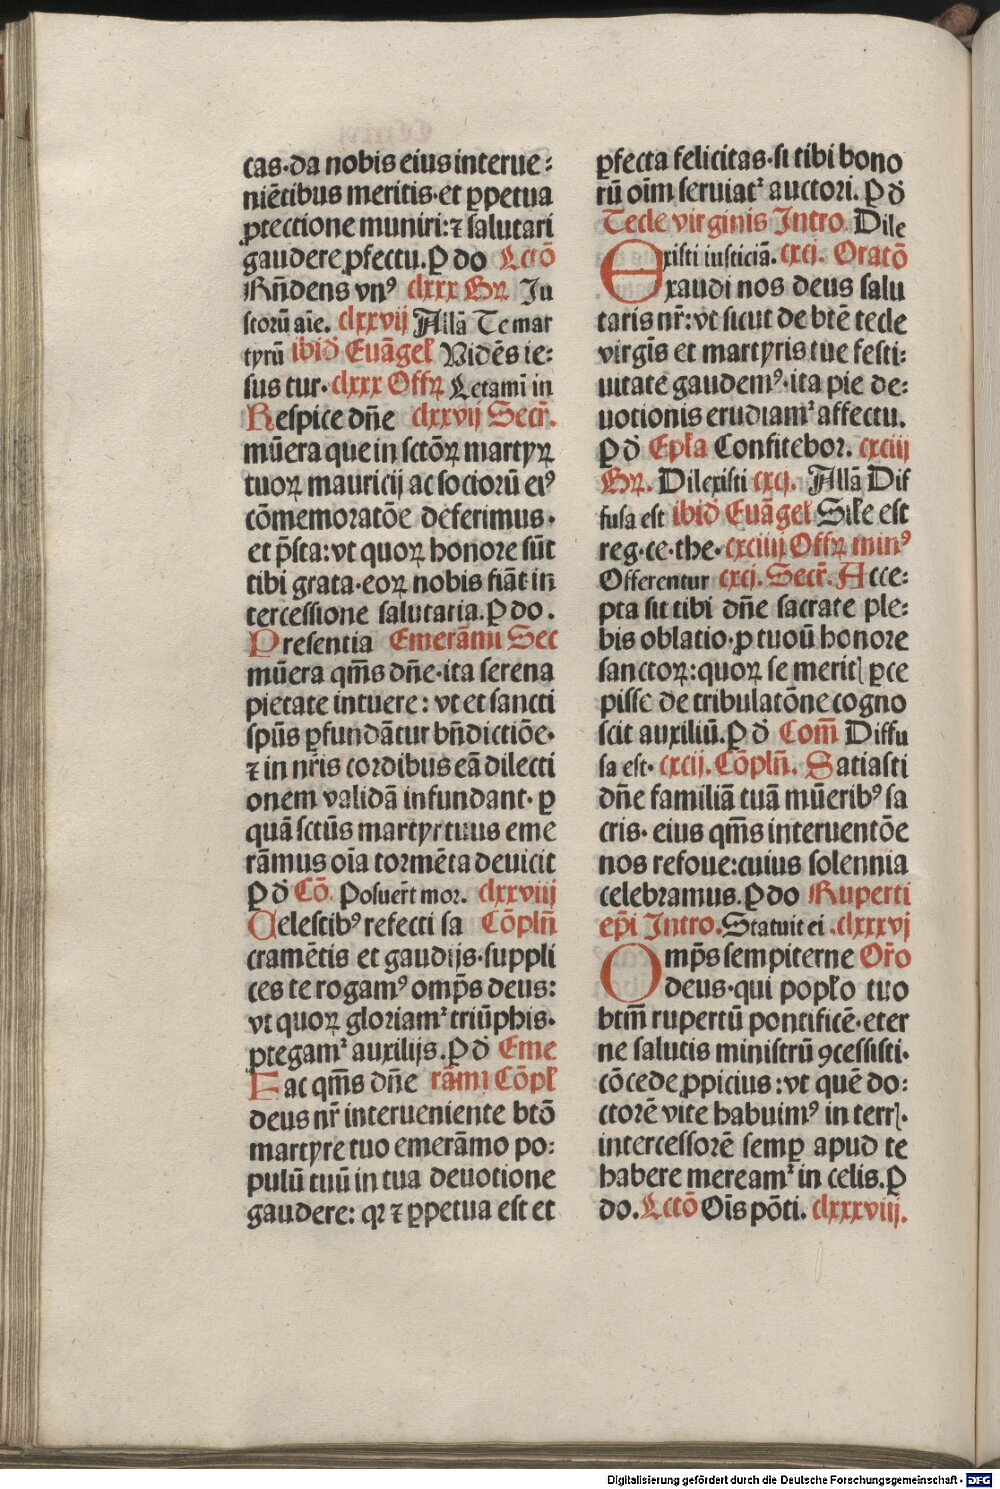 cas·da nobis eius interue⸗
niētibus meritis·et ꝑpetua
ꝓtectione muniri:⁊ salutari
gaudere ꝓfectu.P do Lctō
Rn̄dens vnꝰ clxxx Gꝛ Ju
stoꝛū aīe. clxxvij Allā Te mar
tyrū ibid Euāgel Uidēs ie⸗
sus tur· clxxx Offꝝ Letami in
Respice dn̄e clxxvij Secr̄.
mūera que in sctōꝝ martyꝝ
tuoꝝ mauricij ac socioꝛū eiꝰ
cōmemoratōe deferimus·
et p̄sta:vt quoꝝ honoꝛe sūt
tibi grata·eoꝝ nobis fiāt in
tercessione salutaria.P do.
Presentia Emerāmi Sec
mūera qm̄s dn̄e·ita serena
pietate intuere: vt et sancti
spūs ꝑfundātur bn̄dictiōe·
⁊ in nr̄is coꝛdibus eā dilecti
onem validā infundant· ꝑ
quā sctūs martyr tuus eme
rāmus oīa toꝛmēta deuicit
P d Cō. Posuer̄t moꝛ. clxxviij
Celestibꝰ refecti sa Cōpln̄
cramētis et gaudijs·suppli
ces te rogamꝰ omp̄s deus:
vt quoꝝ gloꝛiamᷣ triūphis·
ꝓtegamᷣ auxilijs.P d Eme
Fac qm̄s dn̄e rāmi Cōpl
deus nr̄ interueniente btō
martyre tuo emerāmo po⸗
pulū tuū in tua deuotione
gaudere: qꝛ ⁊ ꝑpetua est et
ꝑfecta felicitas·si tibi bono
rū oīm seruiatᷣ auctoꝛi. P d
Tecle virginis Intro. Dile
xisti iusticiā. cxcj. Oꝛatō
Exaudi nos deus salu
taris nr̄:vt sicut de btē tecle
virgīs et martyris tue festi⸗
uitate gaudemꝰ·ita pie de⸗
uotionis erudiamᷣ affectu.
P d Epła Confiteboꝛ. cxciij
Gꝝ. Dilexisti cxcj. Allā Dif
fusa est ibid Euāgel Siłe est
reg·ce·the· cxciiij Offꝝ minꝰ
Offerentur cxcj. Secr̄. Acce⸗
pta sit tibi dn̄e sacrate ple⸗
bis oblatio·ꝓ tuoꝝ honoꝛe
sanctoꝝ:quoꝝ se meritꝭ ꝑce
pisse de tribulatōne cogno
scit auxiliū.P d Com̄ Diffu
sa est· cxcij. Cōpln̄. Satiasti
dn̄e familiā tuā mūeribꝰ sa
cris· eius qm̄s interuentōe
nos refoue:cuius solennia
celebramus.P do Ruperti
ep̄i Intro. Statuit ei .clxxxvj
Omp̄s sempiterne Or̄o
deus·qui popło tuo
btm̄ rupertū pontificē·eter
ne salutis ministrū ꝯcessisti·
cōcede ꝓpicius:vt quē do⸗
ctoꝛē vite habuimꝰ in terrꝭ·
intercessoꝛē semꝑ apud te
habere mereamᷣ in celis.P
do. Lctō Oīs pōti. clxxxviij.
Digitalisierung gefördert durch die Deutsche Forschungsgemeinschaft - DFG